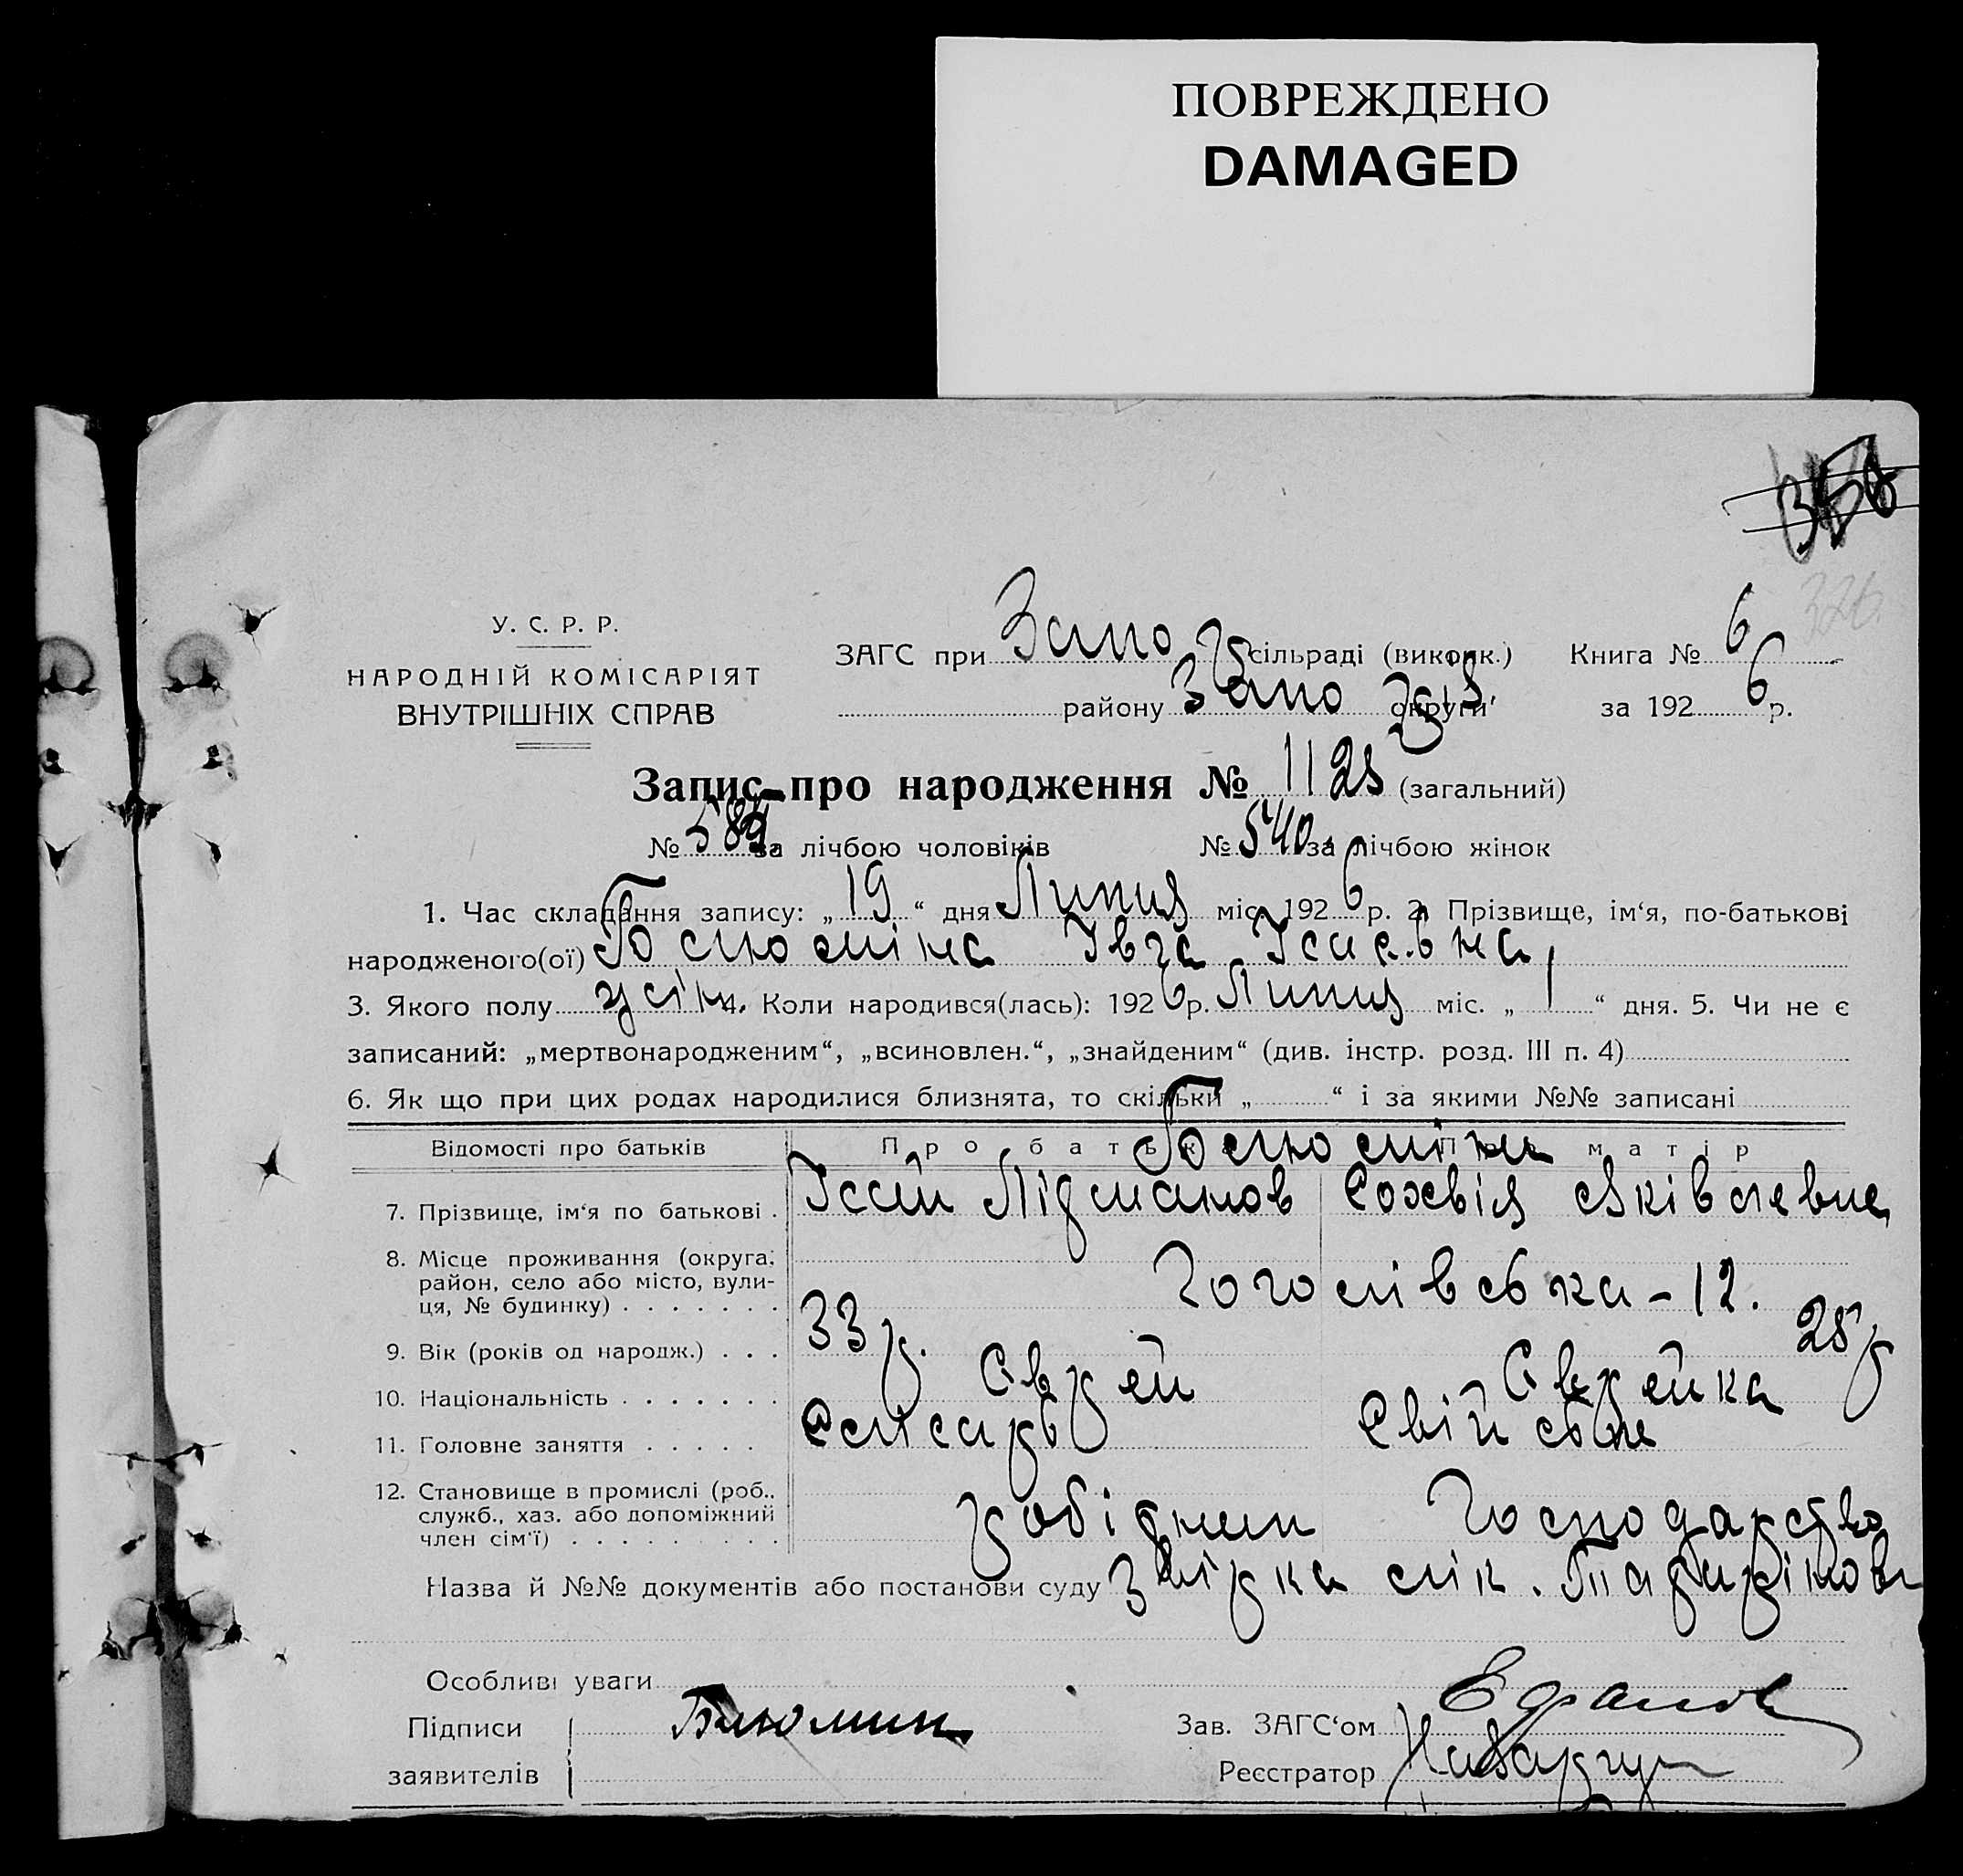 ПОВРЕЖДЕНО
DAMAGED
326.
У. С. Р. Р.
НАРОДНІЙ КОМІСАРІЯТ
ВНУТРІШНІХ СПРАВ
ЗАГС при сільраді (виконк.) Книга № 6
району округи за 1926 р.
Запис про народження № 1125 (загальний)
№ за лічбою чоловіків № 540 за лічбою жінок
1. Час складання запису: „19“ дня Липця міс. 1926 р. 2. Прізвище, ім‘я, по-батькові
народженого(ої) Блюмліна Івга Ісаевна
3. Якого полу жін. 4. Коли народився(лась): 1926 р. Липця міс. „1“ дня. 5. Чи не є
записаний: „мертвонародженим“, „всиновлен.“, „знайденим“ (див. інстр. розд. III п. 4)
6. Як що при цих родах народилися близнята, то скільки „ “ і за якими №№ записані
Відомості про батьків Про батька Про матір
7. Прізвище, ім‘я по батькові . Яковлевна
8. Місце проживання (округа,
район, село або місто, вули-
ця, № будинку) . . . . . . . Гоголівська - 12.
9. Вік (років од народж.) . . . 33 р. 25 р
10. Національність . . . . . . . Єврей Єврейка
11. Головне заняття . . . . . Слісарь Свійське
12. Становище в промислі (роб.,
служб., хаз. або допоміжний
член сім‘ї) . . . . . . . . . робідник Господарство
Назва й №№ документів або постанови суду
Особливі уваги
Підписи Блюмин Зав. ЗАГС‘ом
заявителів Реєстратор